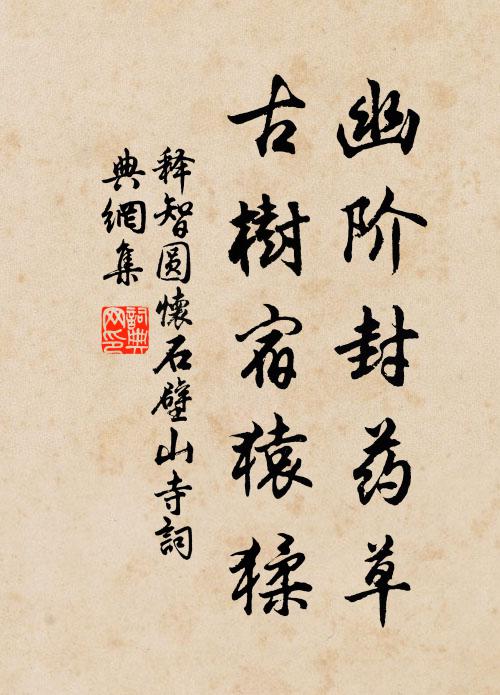 幽阶封药草
古樹宿猿猱
释智圆懷石壁山寺詞
典網集
詞典網印